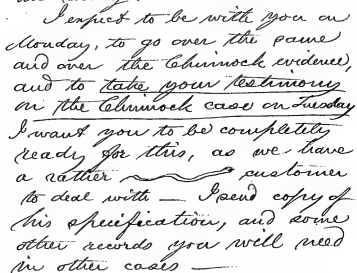 I expect to be with you on
Monday, to go over the same
and over the Chinnock evidence,
and to take your testimony
on the Chinnock case on Tuesday
I want you to be completely
ready for this, as we have
a rather customer
to deal with — I send copy of
his specification, and some
other records you will need
in other cases —